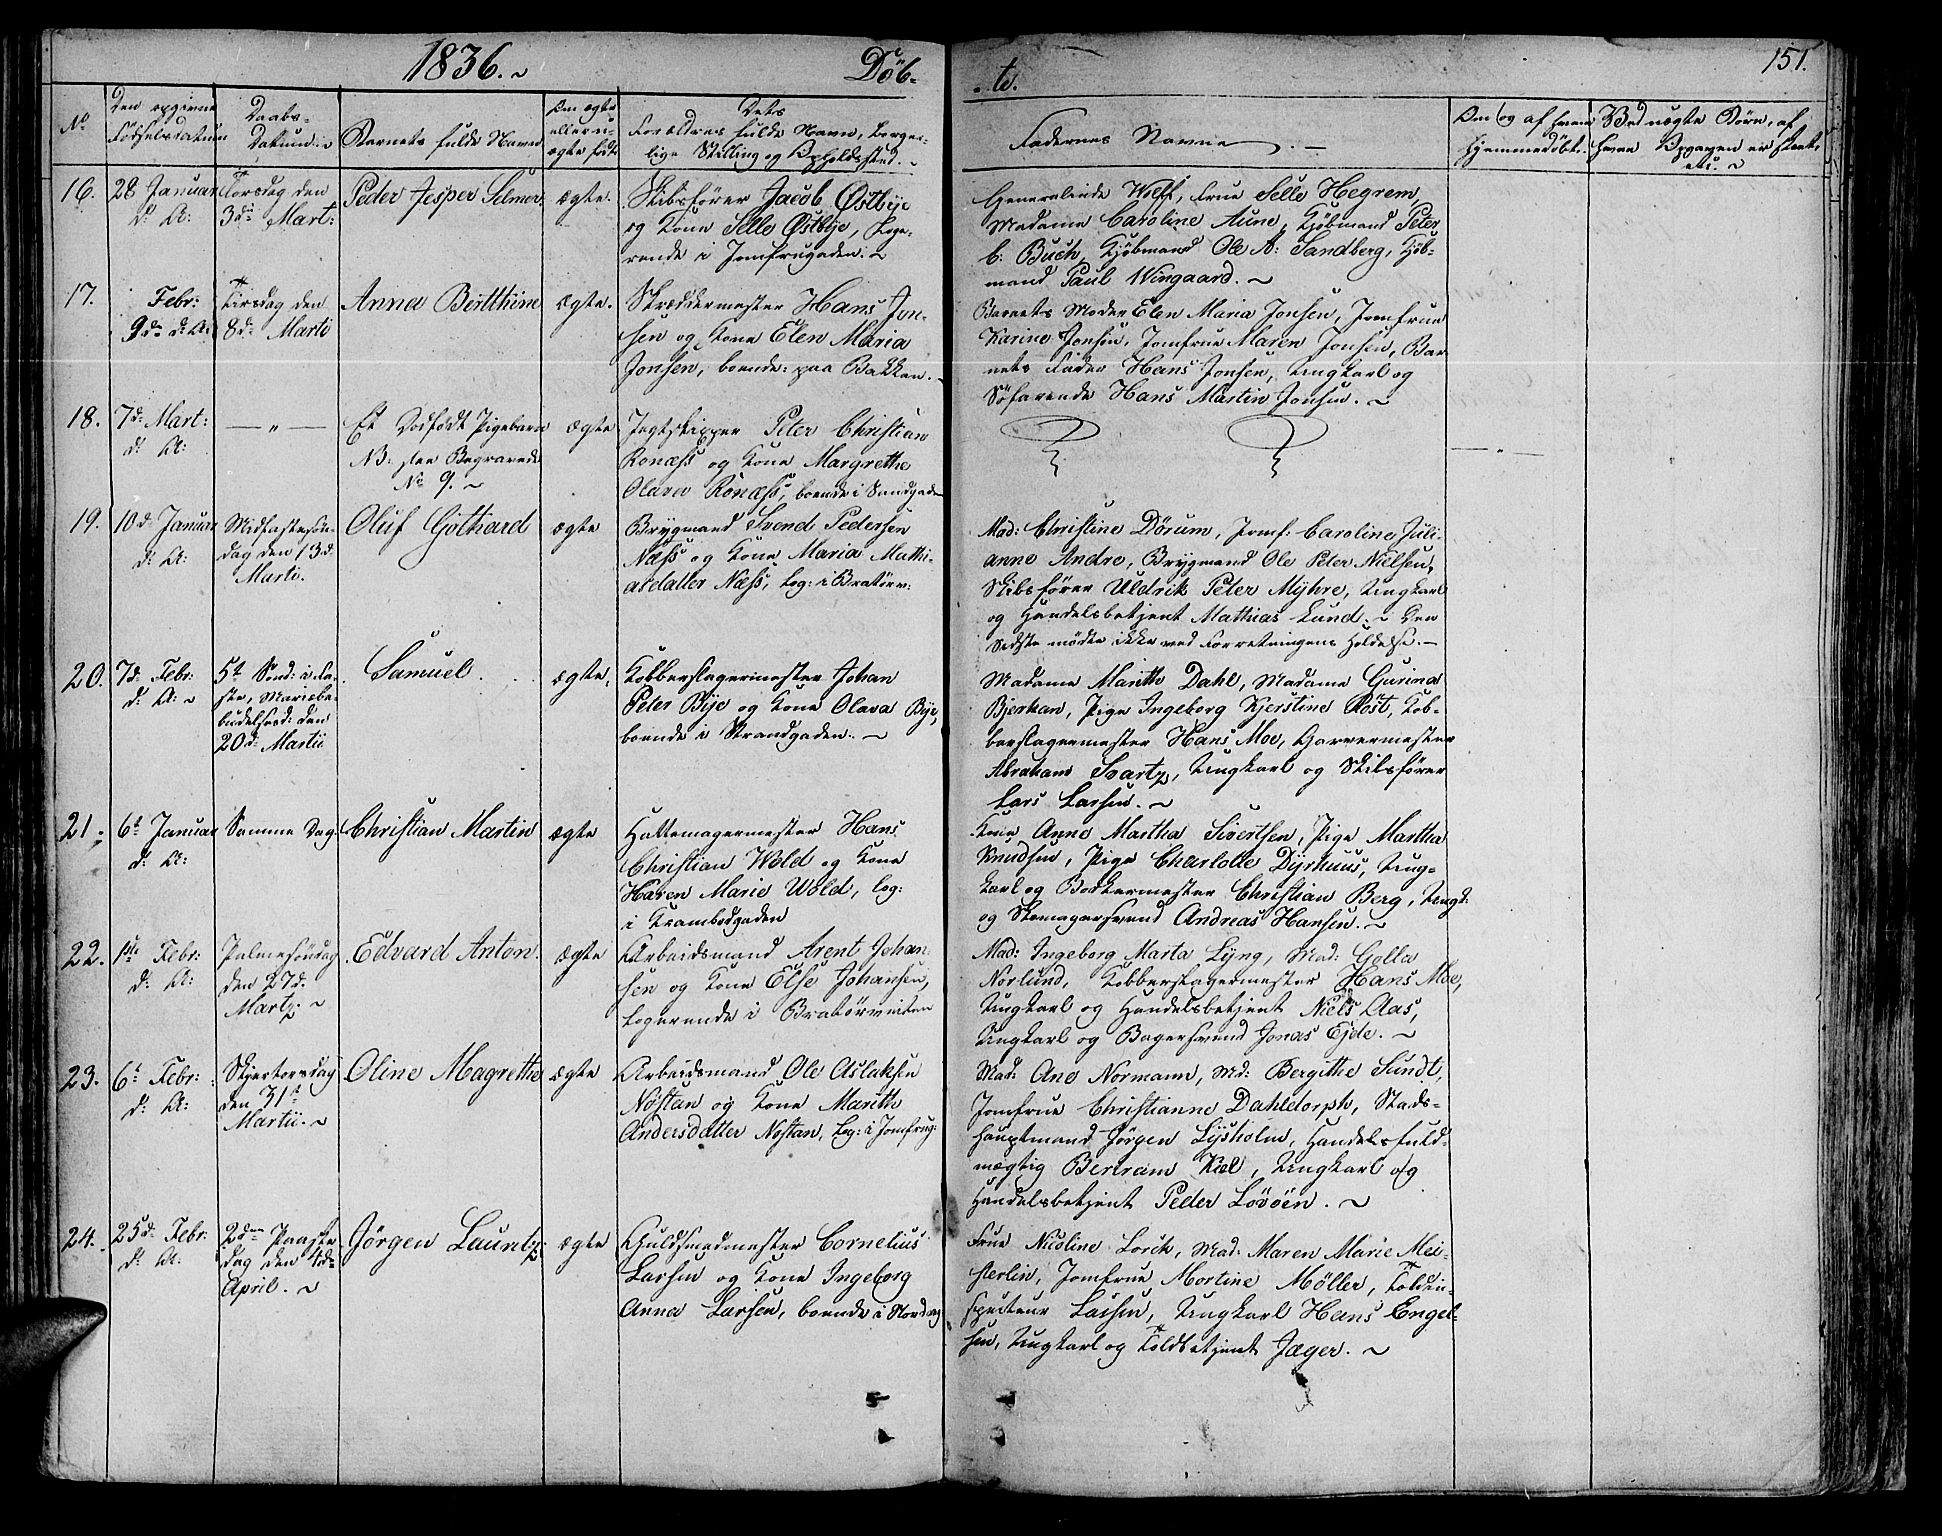 1836.
Døb-
te.
151.
No
Den opgivne Fødselsdatum
Daabs-Datum
Barnets fulde Navn
Om ægte eller uægte født
Dets Forældres fulde Navn, borgerlige Stilling og Opholdssted.
Faddernes Navne.
Om og af hvem Hjemmedøbt.
Ved uægte Børn, af hvem Opgaven er skeet,
16.
28 Januar
d: A:
Torsdag den
3die Mart:
Peder Jesper Selmer
ægte.
Skibsfører Jacob Østbye
og Kone Selle Østbye, Loge-
rende i Jomfrugaden.
Generalinde Wolff, Frue Selle Hegrem,
Madame Caroline Aune, Kjøbmand Peter
C: Buch, Kjøbmand Ole A: Sandberg, Kjøb-
mand Paul Wingaard.
17.
Febr:
9de d: A:
Tirsdag den
8de Marti
Anna Beritthine
ægte.
Skræddermester Hans Jon-
sen og Kone Elen Maria
Jonsen, boende paa Bakken.
Barnets Moder Elen Maria Jonsen, Jomfrue
Karine Jonsen, Jomfrue Maren Jonsen, Bar-
nets Fader Hans Jonsen, Ungkarl og
Søfarende Hans Martin Jonsen.
18.
7de Mart:
d: A:
— " —
Et Dødfødt Pigebarn
NB: see Begravede
No 9.
ægte
Jagtskipper Peter Christian
Ronæss og Kone Margrethe
Olava Ronæss, boende i Sandgaden
— " —
19.
10de Januar
d: A:
Midfastesøn-
dag den 13de
Marti.
Oluf Gothard
ægte
Brygmand Svend Pedersen
Næss og Kone Maria Mathi-
asdatter Næss, log: i Bratørv:
Mad: Christine Dørum, Jomf: Caroline Juli-
anne Andre, Brygmand Ole Peter Nielsen,
Skibsfører Uldrik Peter Myhre, Ungkarl
og Handelsbetjent Mathias Lund. Den
Sidste mødte ikke ved Forretningens Holdelse.
20.
7de Febr:
d: A:
5te Sønd: i Fa-
ste, Mariæbe-
budelsesd: den
20de Martii
Samuel
ægte.
Kobberslagermester Johan
Peter Bye og Kone Olava Bye,
boende i Strandgaden.
Madame Marith Dahl, Madame Gurina
Bjerkan, Pige Ingeborg Kjerstine Røst, Kob-
berslagermester Hans Moe, Garvermester
Abraham Svartz, Ungkarl og Skibsfører
Lars Larsen.
21.
6te Januar
d: A:
Samme Dag
Christian Martin
ægte
Hattemagermester Hans
Christian Wold og Kone
Haren Marie Wold, log:
i Krambodgaden
Kone Anne Martha Sivertsen, Pige Martha
Knudsen, Pige Charlotte Dyrhuus, Ung-
karl og Bødkermester Christian Berg, Ungk:
og Skomagersvend Andreas Hansen.
22.
1ste Febr:
d: A:
Palmesøndag
den 27de
Marty.
Edvard Anton.
ægte
Arbeidsmand Arent Johan-
sen og Kone Else Johansen,
logerende i Bratørveiten
Mad: Ingeborg Marta Lyng, Mad: Golla
Norlund, Kobberslagermester Hans Moe,
Ungkarl og Handelsbetjent Niels Aas,
Ungkarl og Bagersvend Jonas Ejde.
23.
6te Febr:
d: A:
Skjertorsdag
den 31te
Martii.
Oline Magrethe
ægte
Arbeidsmand Ole Aslaksen
Nøstan og Kone Marith
Andersdatter Nøstan, log: i Jomfrug:
Mad: Ane Normann, Md: Bergithe Sundt,
Jomfrue Christianne Dahldorph, Stads-
hauptmand Jørgen Lysholm, Handelsfuld-
mægtig Bertram Kiel, Ungkarl og
Handelsbetjent Peder Løvøen.
24.
25de Febr:
d: A:
2den Paaske-
dag den 4de
April.
Jørgen Lauritz.
ægte
Guldsmedmester Cornelius
Larsen og Kone Ingeborg
Anna Larsen, boende i Nordreg
Frue Nicoline Lorck, Mad: Maren Marie Mei-
sterlin, Jomfrue Mortine Møller, Toldin-
specteur Lassen, Ungkarl Hans Engel-
sen, Ungkarl og Toldbetjent Jæger.